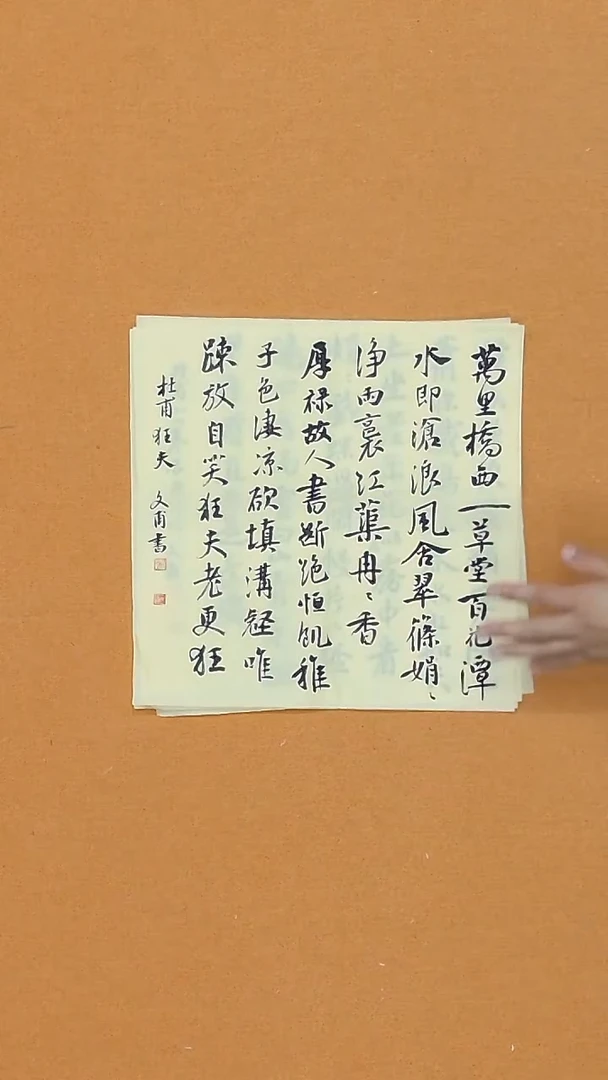 萬里橋西一草堂百花潭
水即滄浪風含翠篠娟〻
淨雨裛红蕖冉〻香
厚禄故人書斷絶恒飢稚
子色凄凉欲填溝壑唯
踈放自笑狂夫老更狂
杜甫狂夫 文甫書